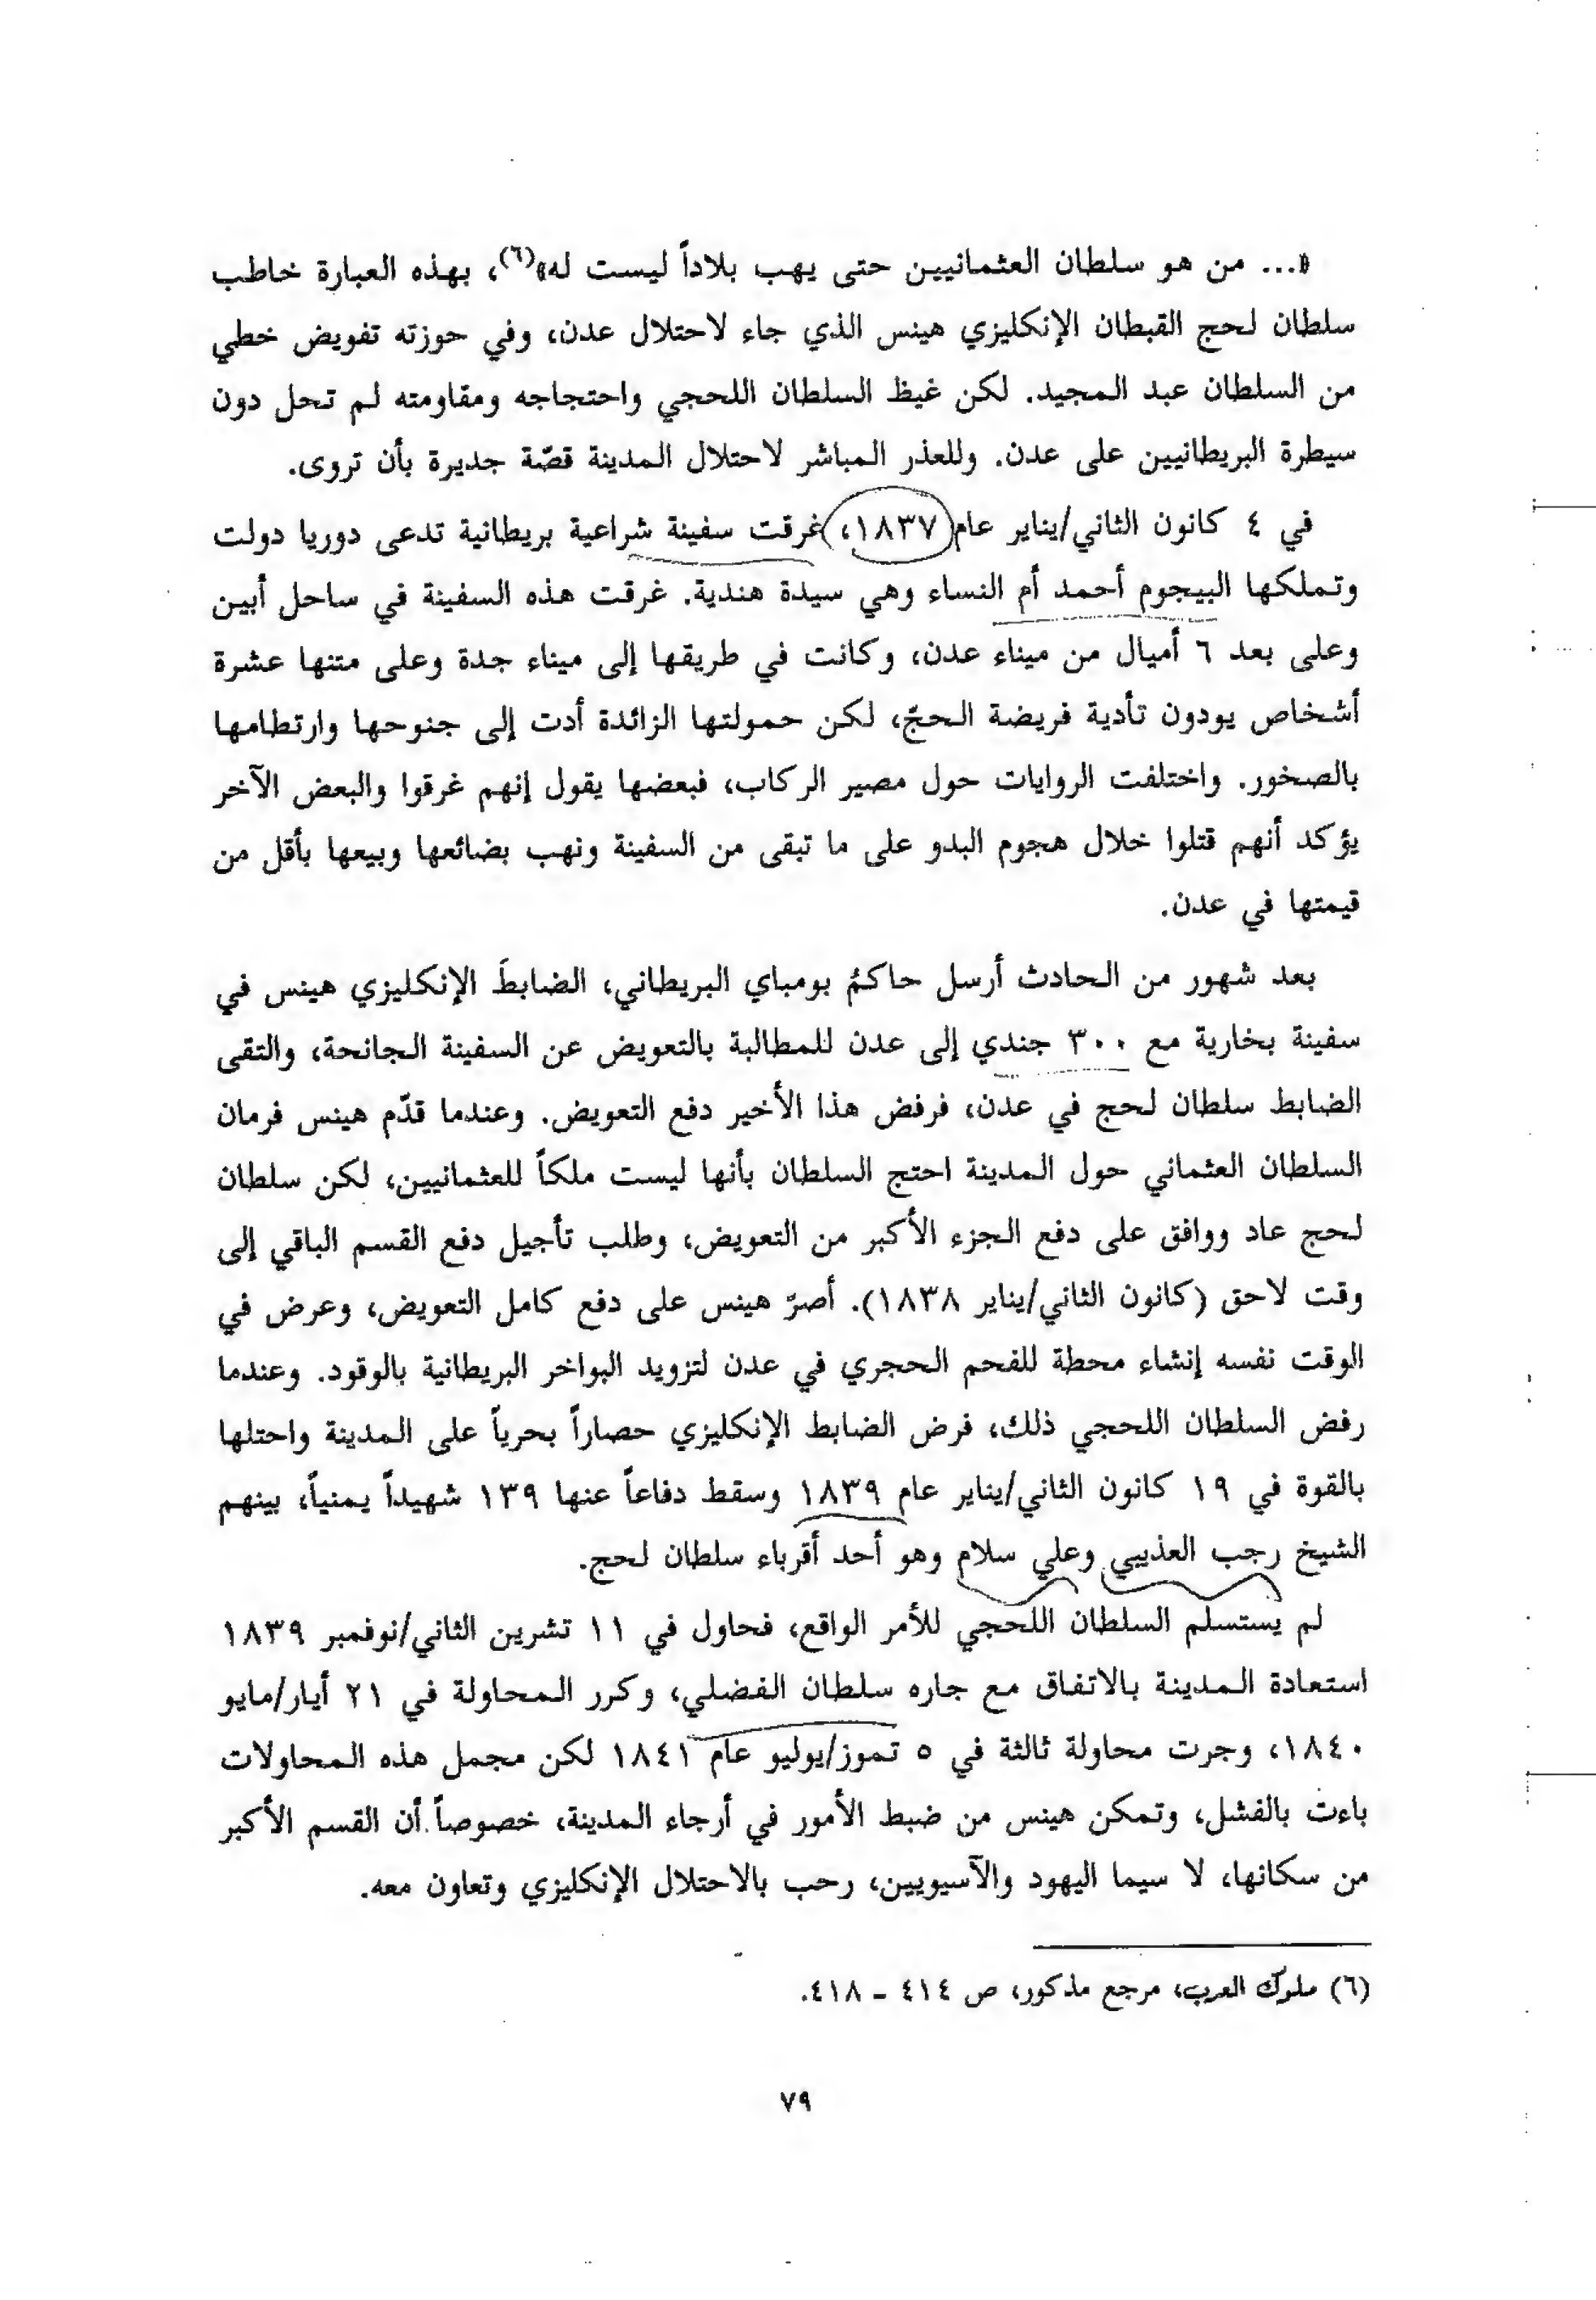 «... من هو سلطان العثمانيين حتى يهب بلاداً ليست له»(٦)، بهذه العبارة خاطب
سلطان لحج القبطان الإنكليزي هينس الذي جاء لاحتلال عدن، وفي حوزته تفويض خطي
من السلطان عبد المجيد. لكن غيظ السلطان اللحجي واحتجاجه ومقاومته لم تحل دون
سيطرة البريطانيين على عدن. وللعذر المباشر لاحتلال المدينة قصّة جديرة بأن تروى.
في ٤ كانون الثاني/يناير عام ١٨٣٧، غرقت سفينة شراعية بريطانية تدعى دوريا دولت
وتملكها البيجوم أحمد أم النساء وهي سيدة هندية. غرقت هذه السفينة في ساحل أبين
وعلى بعد ٦ أميال من ميناء عدن، وكانت في طريقها إلى ميناء جدة وعلى متنها عشرة
أشخاص يودون تأدية فريضة الحجّ، لكن حمولتها الزائدة أدت إلى جنوحها وارتطامها
بالصخور. واختلفت الروايات حول مصير الركاب، فبعضها يقول إنهم غرقوا والبعض الآخر
يؤكد أنهم قتلوا خلال هجوم البدو على ما تبقى من السفينة ونهب بضائعها وبيعها بأقل من
قيمتها في عدن.
بعد شهور من الحادث أرسل حاكمُ بومباي البريطاني، الضابطَ الإنكليزي هينس في
سفينة بخارية مع ٣٠٠ جندي إلى عدن للمطالبة بالتعويض عن السفينة الجانحة، والتقى
الضابط سلطان لحج في عدن، فرفض هذا الأخير دفع التعويض. وعندما قدّم هينس فرمان
السلطان العثماني حول المدينة احتج السلطان بأنها ليست ملكاً للعثمانيين، لكن سلطان
لحج عاد ووافق على دفع الجزء الأكبر من التعويض، وطلب تأجيل دفع القسم الباقي إلى
وقت لاحق (كانون الثاني/يناير ١٨٣٨). أصرّ هينس على دفع كامل التعويض، وعرض في
الوقت نفسه إنشاء محطة للفحم الحجري في عدن لتزويد البواخر البريطانية بالوقود. وعندما
رفض السلطان اللحجي ذلك، فرض الضابط الإنكليزي حصاراً بحرياً على المدينة واحتلها
بالقوة في ١٩ كانون الثاني/يناير عام ١٨٣٩ وسقط دفاعاً عنها ١٣٩ شهيداً يمنياً، بينهم
الشيخ رجب العذيبي وعلي سلام وهو أحد أقرباء سلطان لحج.
لم يستسلم السلطان اللحجي للأمر الواقع، فحاول في ١١ تشرين الثاني/نوفمبر ١٨٣٩
استعادة المدينة بالاتفاق مع جاره سلطان الفضلي، وكرر المحاولة في ٢١ أيار/مايو
١٨٤٠، وجرت محاولة ثالثة في ٥ تموز/يوليو عام ١٨٤١ لكن مجمل هذه المحاولات
باءت بالفشل، وتمكن هينس من ضبط الأمور في أرجاء المدينة، خصوصاً أن القسم الأكبر
من سكانها، لا سيما اليهود والآسيويين، رحب بالاحتلال الإنكليزي وتعاون معه.
(٦) ملوك العرب، مرجع مذكور، ص ٤١٤ - ٤١٨.
٧٩